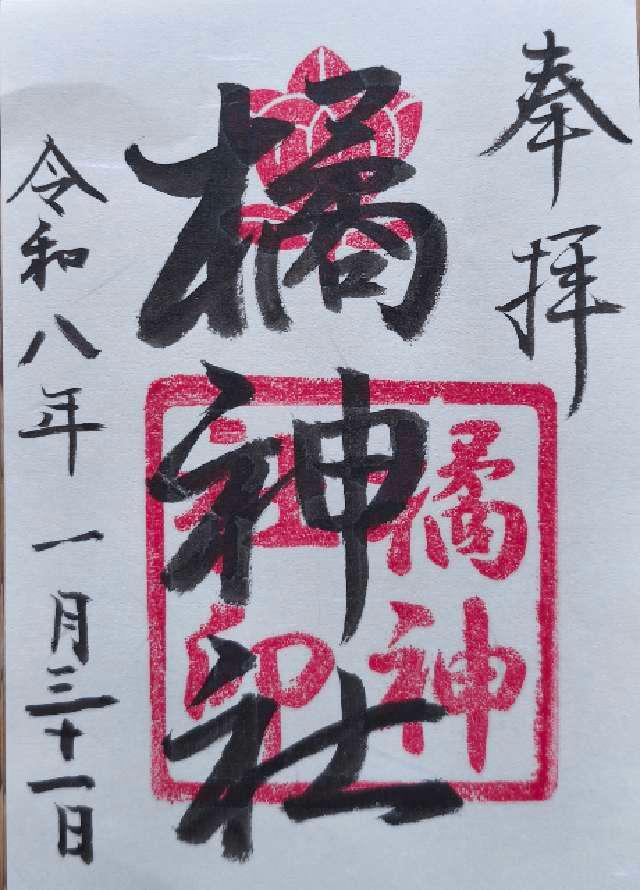 奉拝
橘神社
橘神社印
令和八年一月三十一日